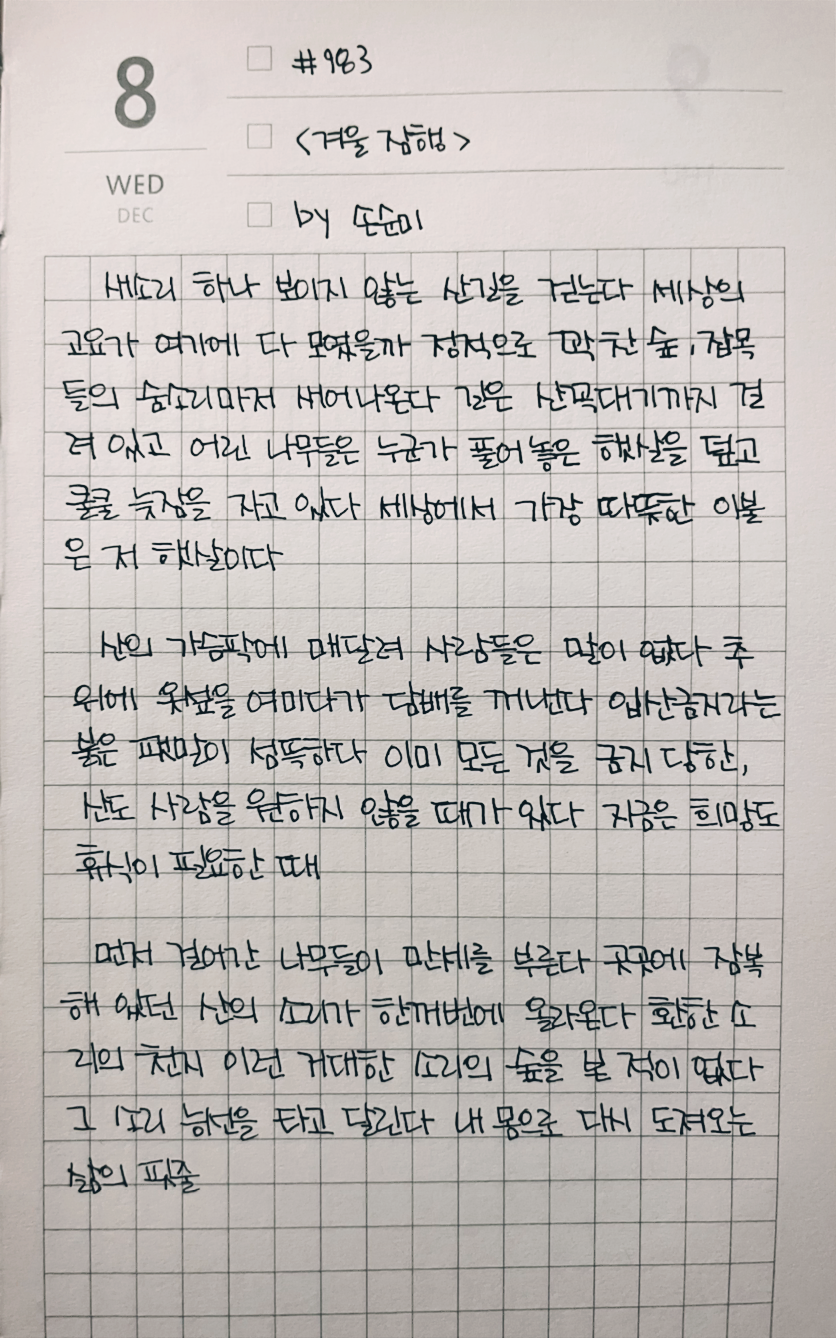 8
WED
DEC
#983
<겨울 잠행>
by 손순미
새소리 하나 보이지 않는 산길을 걷는다 세상의
고요가 여기에 다 모였을까 정적으로 꽉 찬 숲, 잡목
들의 숨소리마저 새어나온다 길은 산꼭대기까지 걸
려 있고 어린 나무들은 누군가 풀어놓은 햇살을 덮고
쿨쿨 늦잠을 자고 있다 세상에서 가장 따뜻한 이불
은 저 햇살이다
산의 가슴팍에 매달려 사람들은 말이 없다 추
위에 옷섶을 여미다가 담배를 꺼낸다 입산금지라는
붉은 팻말이 섬뜩하다 이미 모든 것을 금지 당한,
산도 사람을 원하지 않을 때가 있다 지금은 희망도
휴식이 필요한 때
먼저 걸어간 나무들이 만세를 부른다 곳곳에 잠복
해 있던 산의 소리가 한꺼번에 올라온다 환한 소
리의 천지 이런 거대한 소리의 숲을 본 적이 없다
그 소리 능선을 타고 달린다 내 몸으로 다시 도져오는
삶의 핏줄